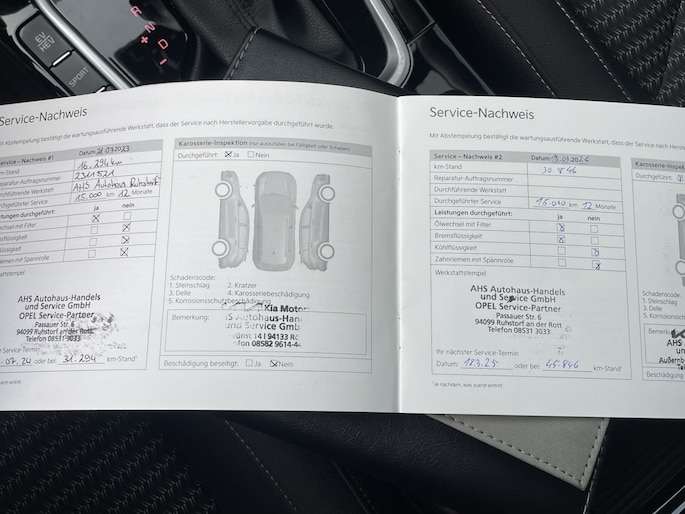 EV
HEV
SPORT
R
N
D
Service-Nachweis
Mit Abstempelung bestätigt die wartungsausführende Werkstatt, dass der Service nach Herstellervorgabe durchgeführt wurde.
Service – Nachweis #1
16.294 km
2311521
AHS Autohaus Ruhstorf
Durchgeführter Service 15.000 km 12 Monate
ja nein
Ölwechsel mit Filter
Bremsflüssigkeit
Kühlflüssigkeit
Zahnriemen mit Spannrolle
AHS Autohaus-Handels
und Service GmbH
OPEL Service-Partner
Passauer Str. 6
94099 Ruhstorf an der Rott
Telefon 08531 3033
Service-Termin
07.24 oder bei: 31.294 km-Stand¹
Karosserie-Inspektion (nur ausfüllen bei Fälligkeit oder Schäden)
Durchgeführt: Ja Nein
Schadenscode:
1. Steinschlag 2. Kratzer
3. Delle 4. Karosseriebeschädigung
5. Korrosionsschutzbeschädigung
Kia Motor
Bemerkung:
Autohaus-Han
und Service Gmb
94133
08582 9614-4
Beschädigung beseitigt: Ja Nein
Service-Nachweis
Mit Abstempelung bestätigt die wartungsausführende Werkstatt, dass der Service nach
Service – Nachweis #2
km-Stand 30.846
Reparatur-Auftragsnummer
Durchführende Werkstatt
Durchgeführter Service 15.000 km 12 Monate
Leistungen durchgeführt: ja nein
Ölwechsel mit Filter
Bremsflüssigkeit
Kühlflüssigkeit
Zahnriemen mit Spannrolle
Werkstattstempel
AHS Autohaus-Handels
und Service GmbH
OPEL Service-Partner
Passauer Str. 6
94099 Ruhstorf an der Rott
Telefon 08531 3033
Ihr nächster Service-Termin
Datum: 18.3.25 oder bei: 45.846 km-Stand¹
¹Je nachdem, was zuerst eintritt.
Karosserie-Inspe
Durchgeführt:
Schadenscode:
1. Steinschlag
3. Delle
5. Korrosions
Bemerkung:
AHS